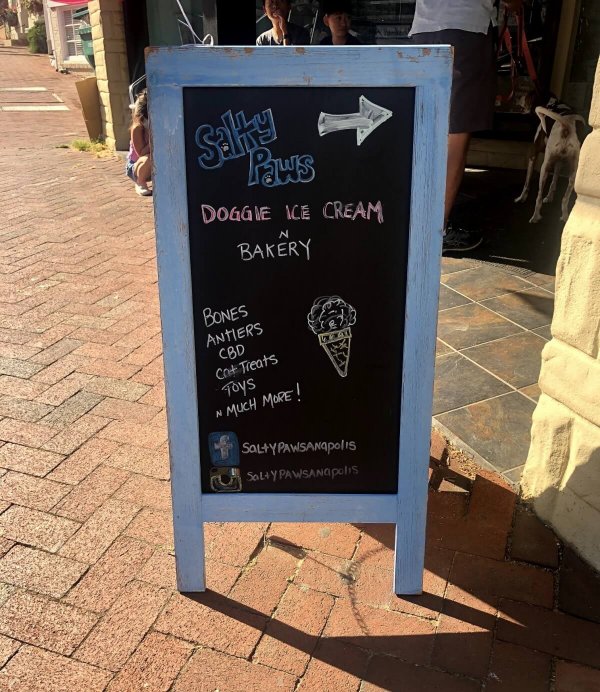 Salty
Paws
DOGGIE ICE CREAM
N
BAKERY
BONES
ANTLERS
CBD
Cat Treats
TOYS
N MUCH MORE!
f SALTYPAWSANAPOLIS
SALTYPAWSANAPOLIS